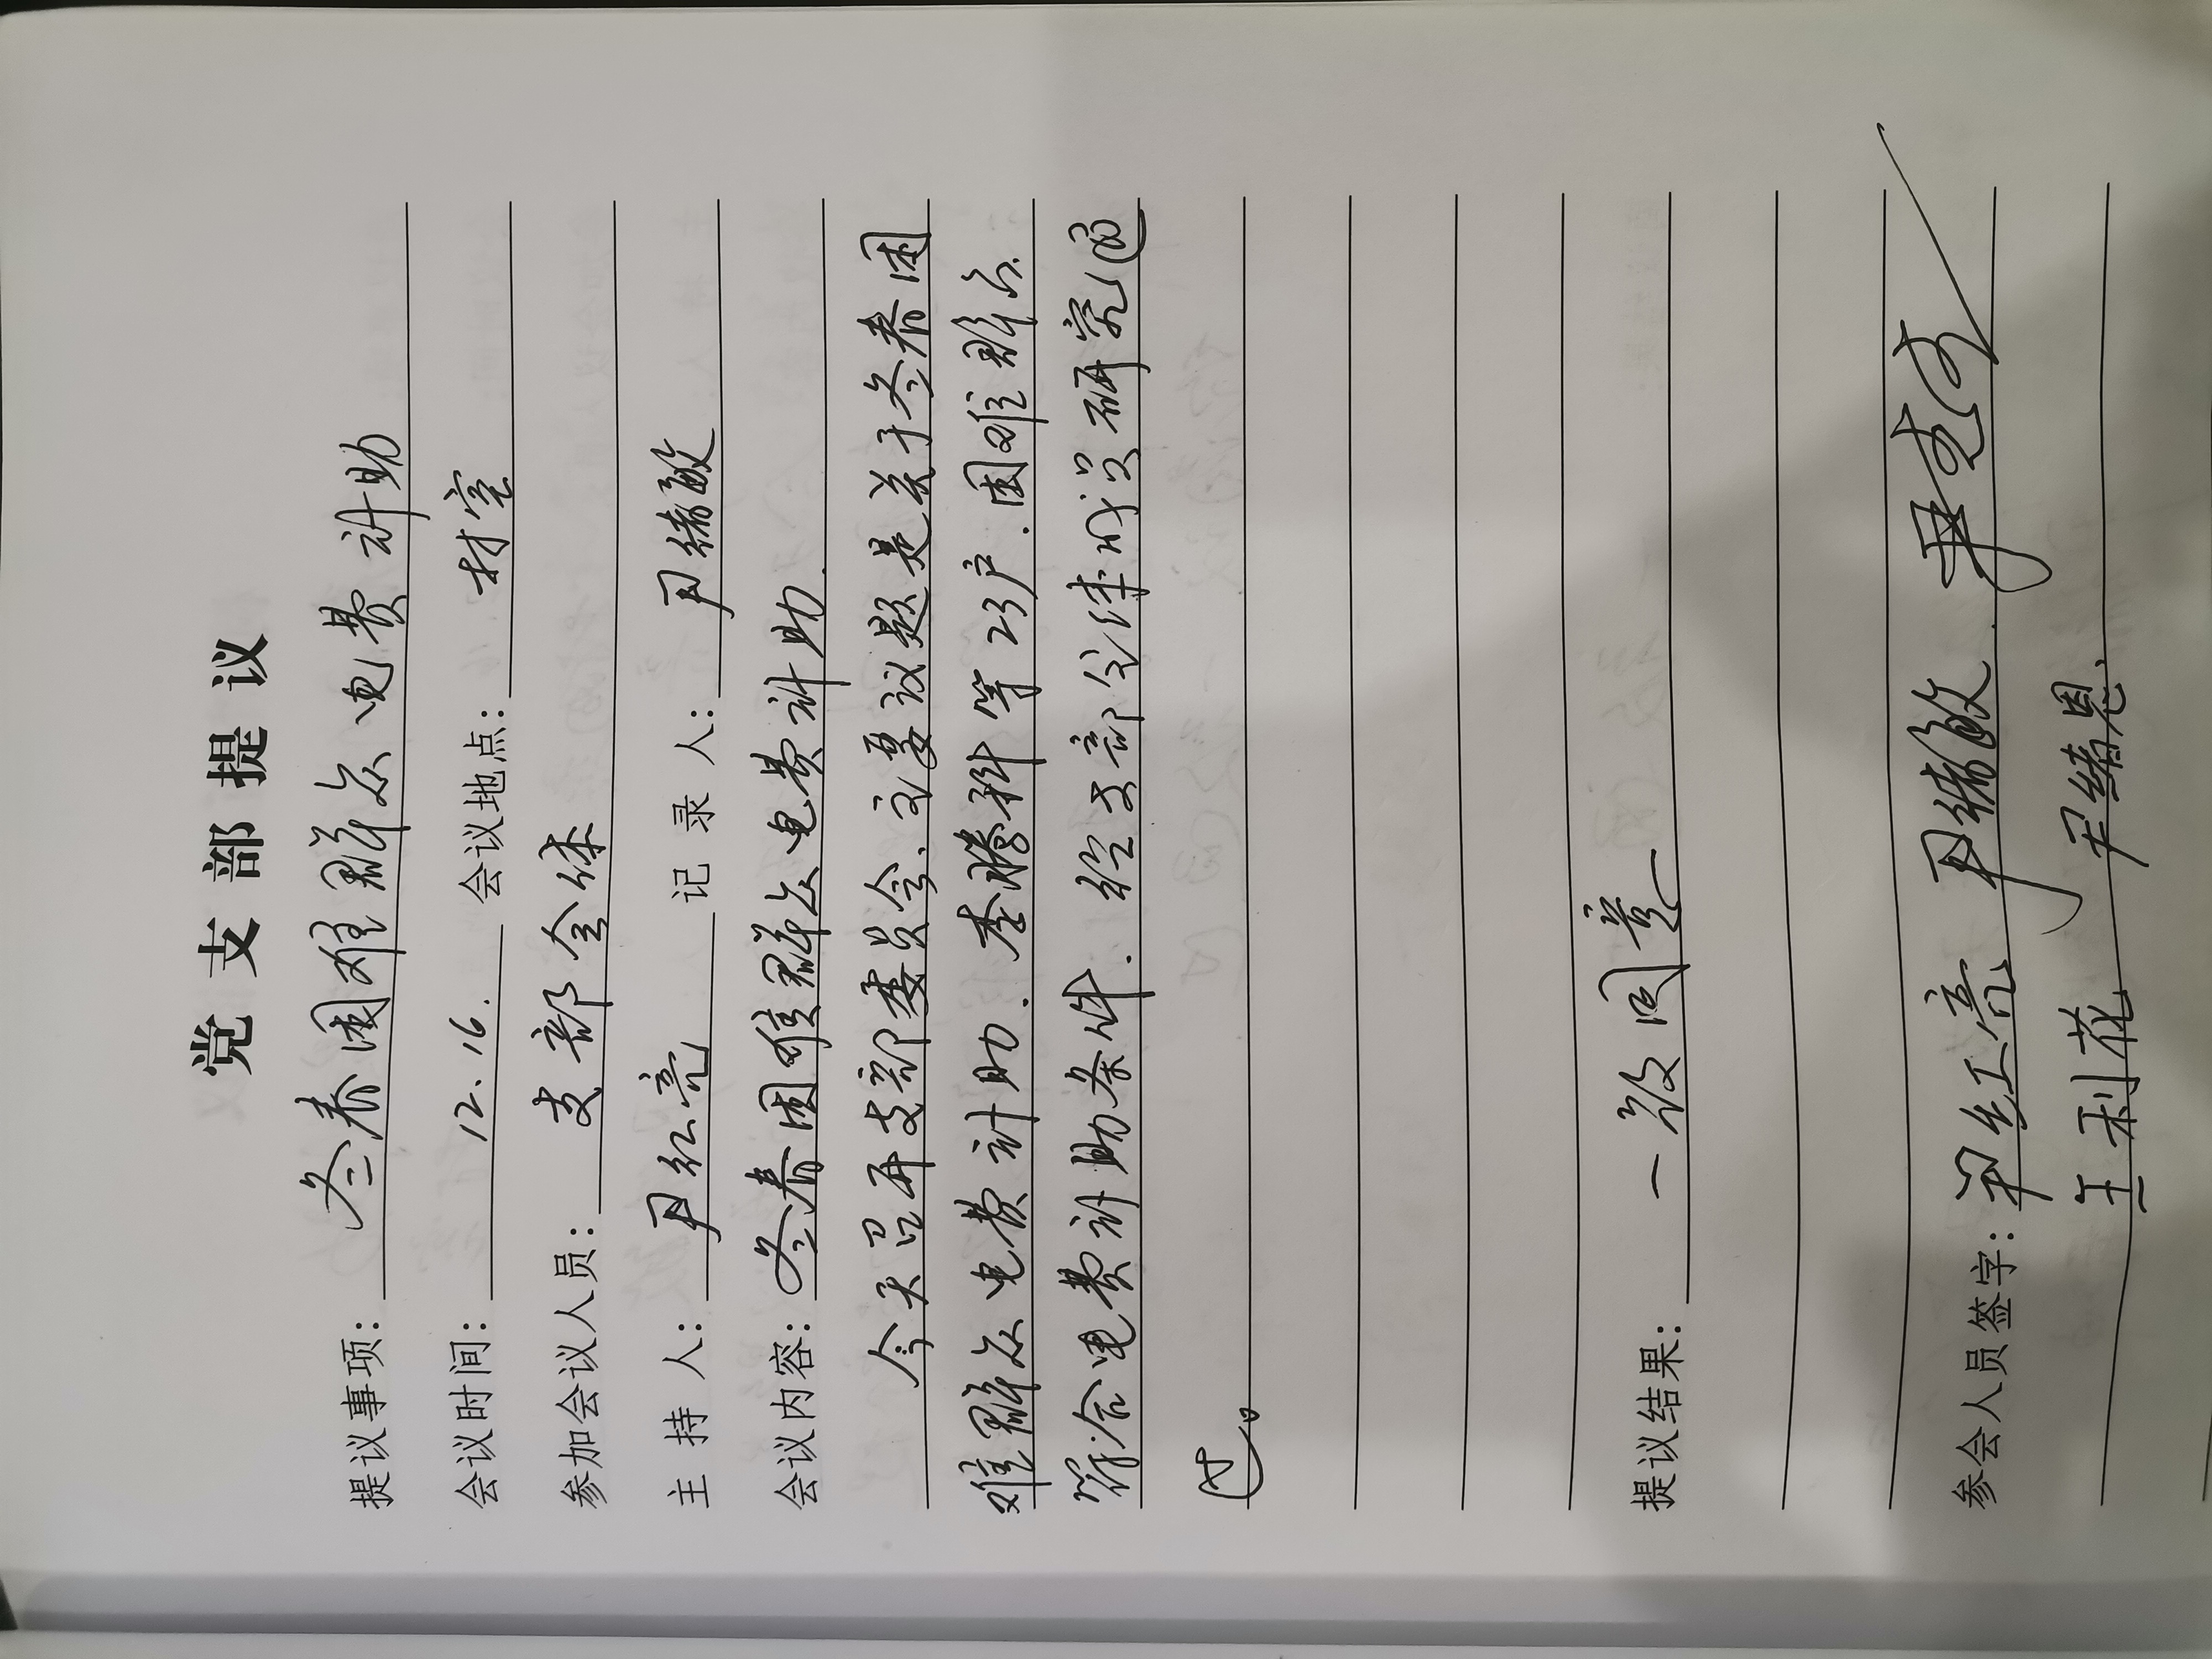 党支部提议
提议事项：冬春困难群众电费补助
会议时间：12.16. 会议地点：村室
参加会议人员：支部全体
主持人：尹红亮 记录人：尹绪敏
会议内容：冬春困难群众电费补助.
今天召开支部委员会.主要议题是关于冬春困
难群众电费补助.李腾科等23户.困难群众
符合电费补助条件.经支部全体成员研究通
过。
提议结果：一致同意
参会人员签字：尹红亮 尹绪敏.
王利花 尹绪恩.